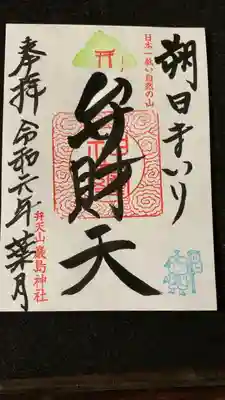 朔日まいり
日本一低い自然の山
弁財天
奉拝
令和六年葉月
弁天山厳島神社